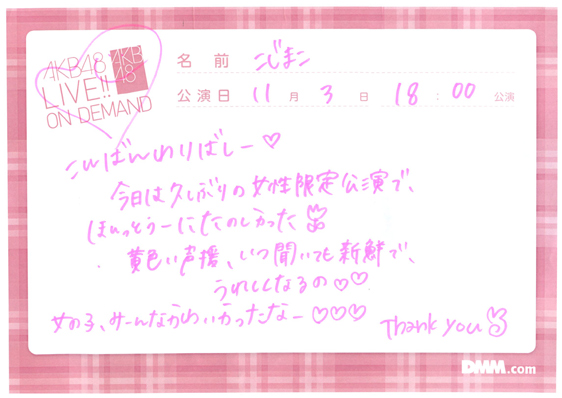 AKB48
LIVE!!
ON DEMAND
AKB
48
名前 こじまこ
公演日 11月3日 18:00公演
こんばんわりばしー♡
今日は久しぶりの女性限定公演で、
ほんっとうーにたのしかった
黄色い声援、いつ聞いても新鮮で、
うれしくなるの♡♡
女の子、みーんなかわいかったなー♡♡♡
Thank you
DMM.com